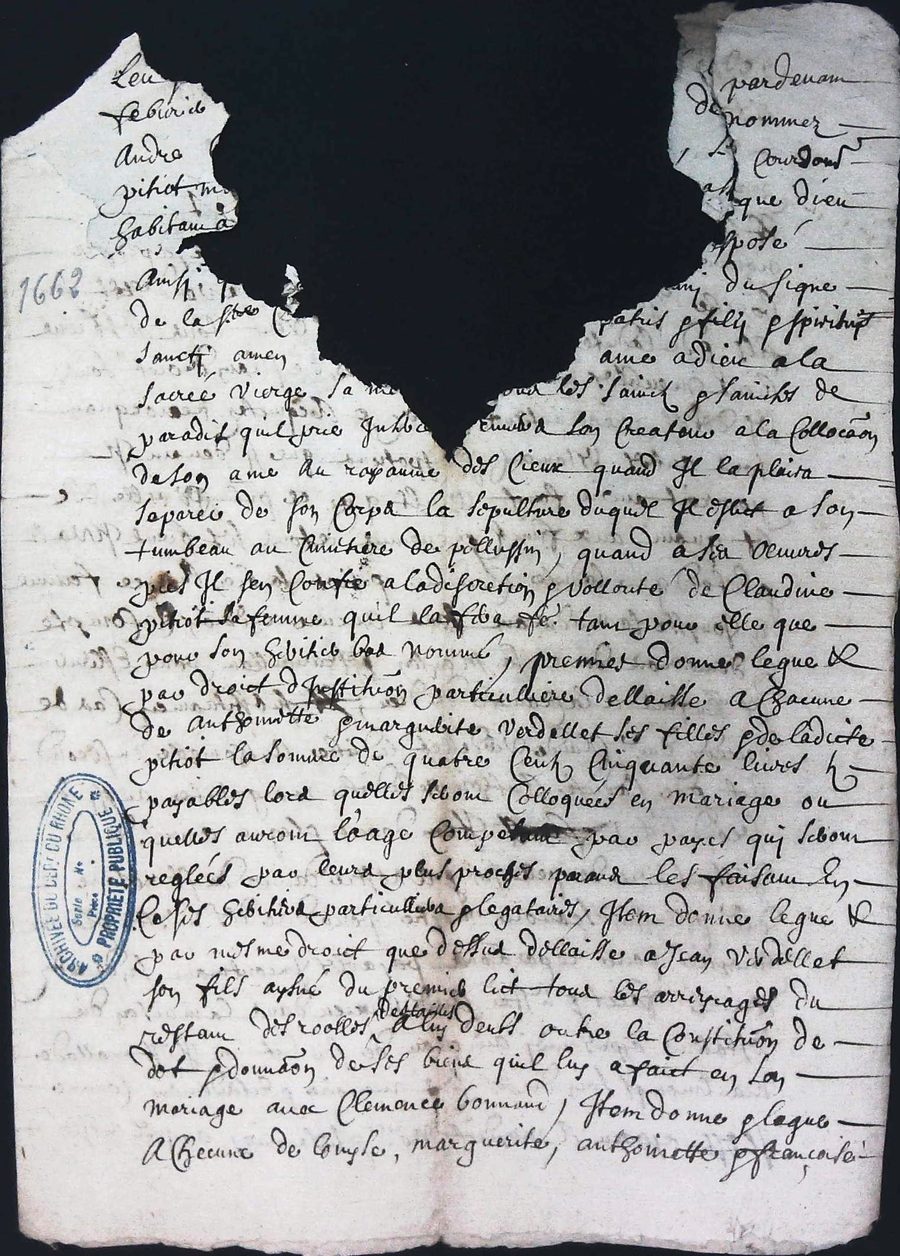 L'en pardevam
febvrier de nommez
Andre Les Courdons
pitiot que dieu
habitam a sposé
Ainsi q du signe
de la ste C patris & filij & spiritus
sancti amen ame a dieu a la
sacrée vierge sa me tous les sainctz & sainctes de
paradis quil prie son Createur a la Collocãon
de son ame au royaume des Cieux quand Il la plaira
separee de son Corps la sepulture duquel Il eslit a son
tumbeau au Cimetiere de pellussin, quand a ses oeuvres
pies Il sen Confie a la discretion & vollonté de Claudine
pitiot sa femme quil la fera fe. tam pour elle que
pour son heritier bas nommé, premier donne legue &
par droict dInstitũon particulliere dellaisse a Chacune
de anthoinette & marguerite verdellet ses filles & de ladicte
pitiot la somme de quatre Centz Cinquante livres tz
payables lors quelles seront Colloquées en mariage ou
quelles auront l'aage Competam par payes qui seront
reglées par leurs plus proches parans les faisam En
Ce ses heritiers particulliers & legataires, Item donne legue &
par mesme droict que dessus dellaisse a Jean verdellet
son fils aysné du premier lict tous les arreyrages du
restam des roolles des tailles a luy deubt outre la Constitũon de
dot & donnãon de ses biens quil luy a faict en son
mariage avec Clemence bonnand, Item donne & legue
A Checune de Louyse, marguerite, anthoinette & françoise
1662
ARCHIVES DU DEPt DU RHONE
PROPRIÉTÉ PUBLIQUE
Serie No
Piece